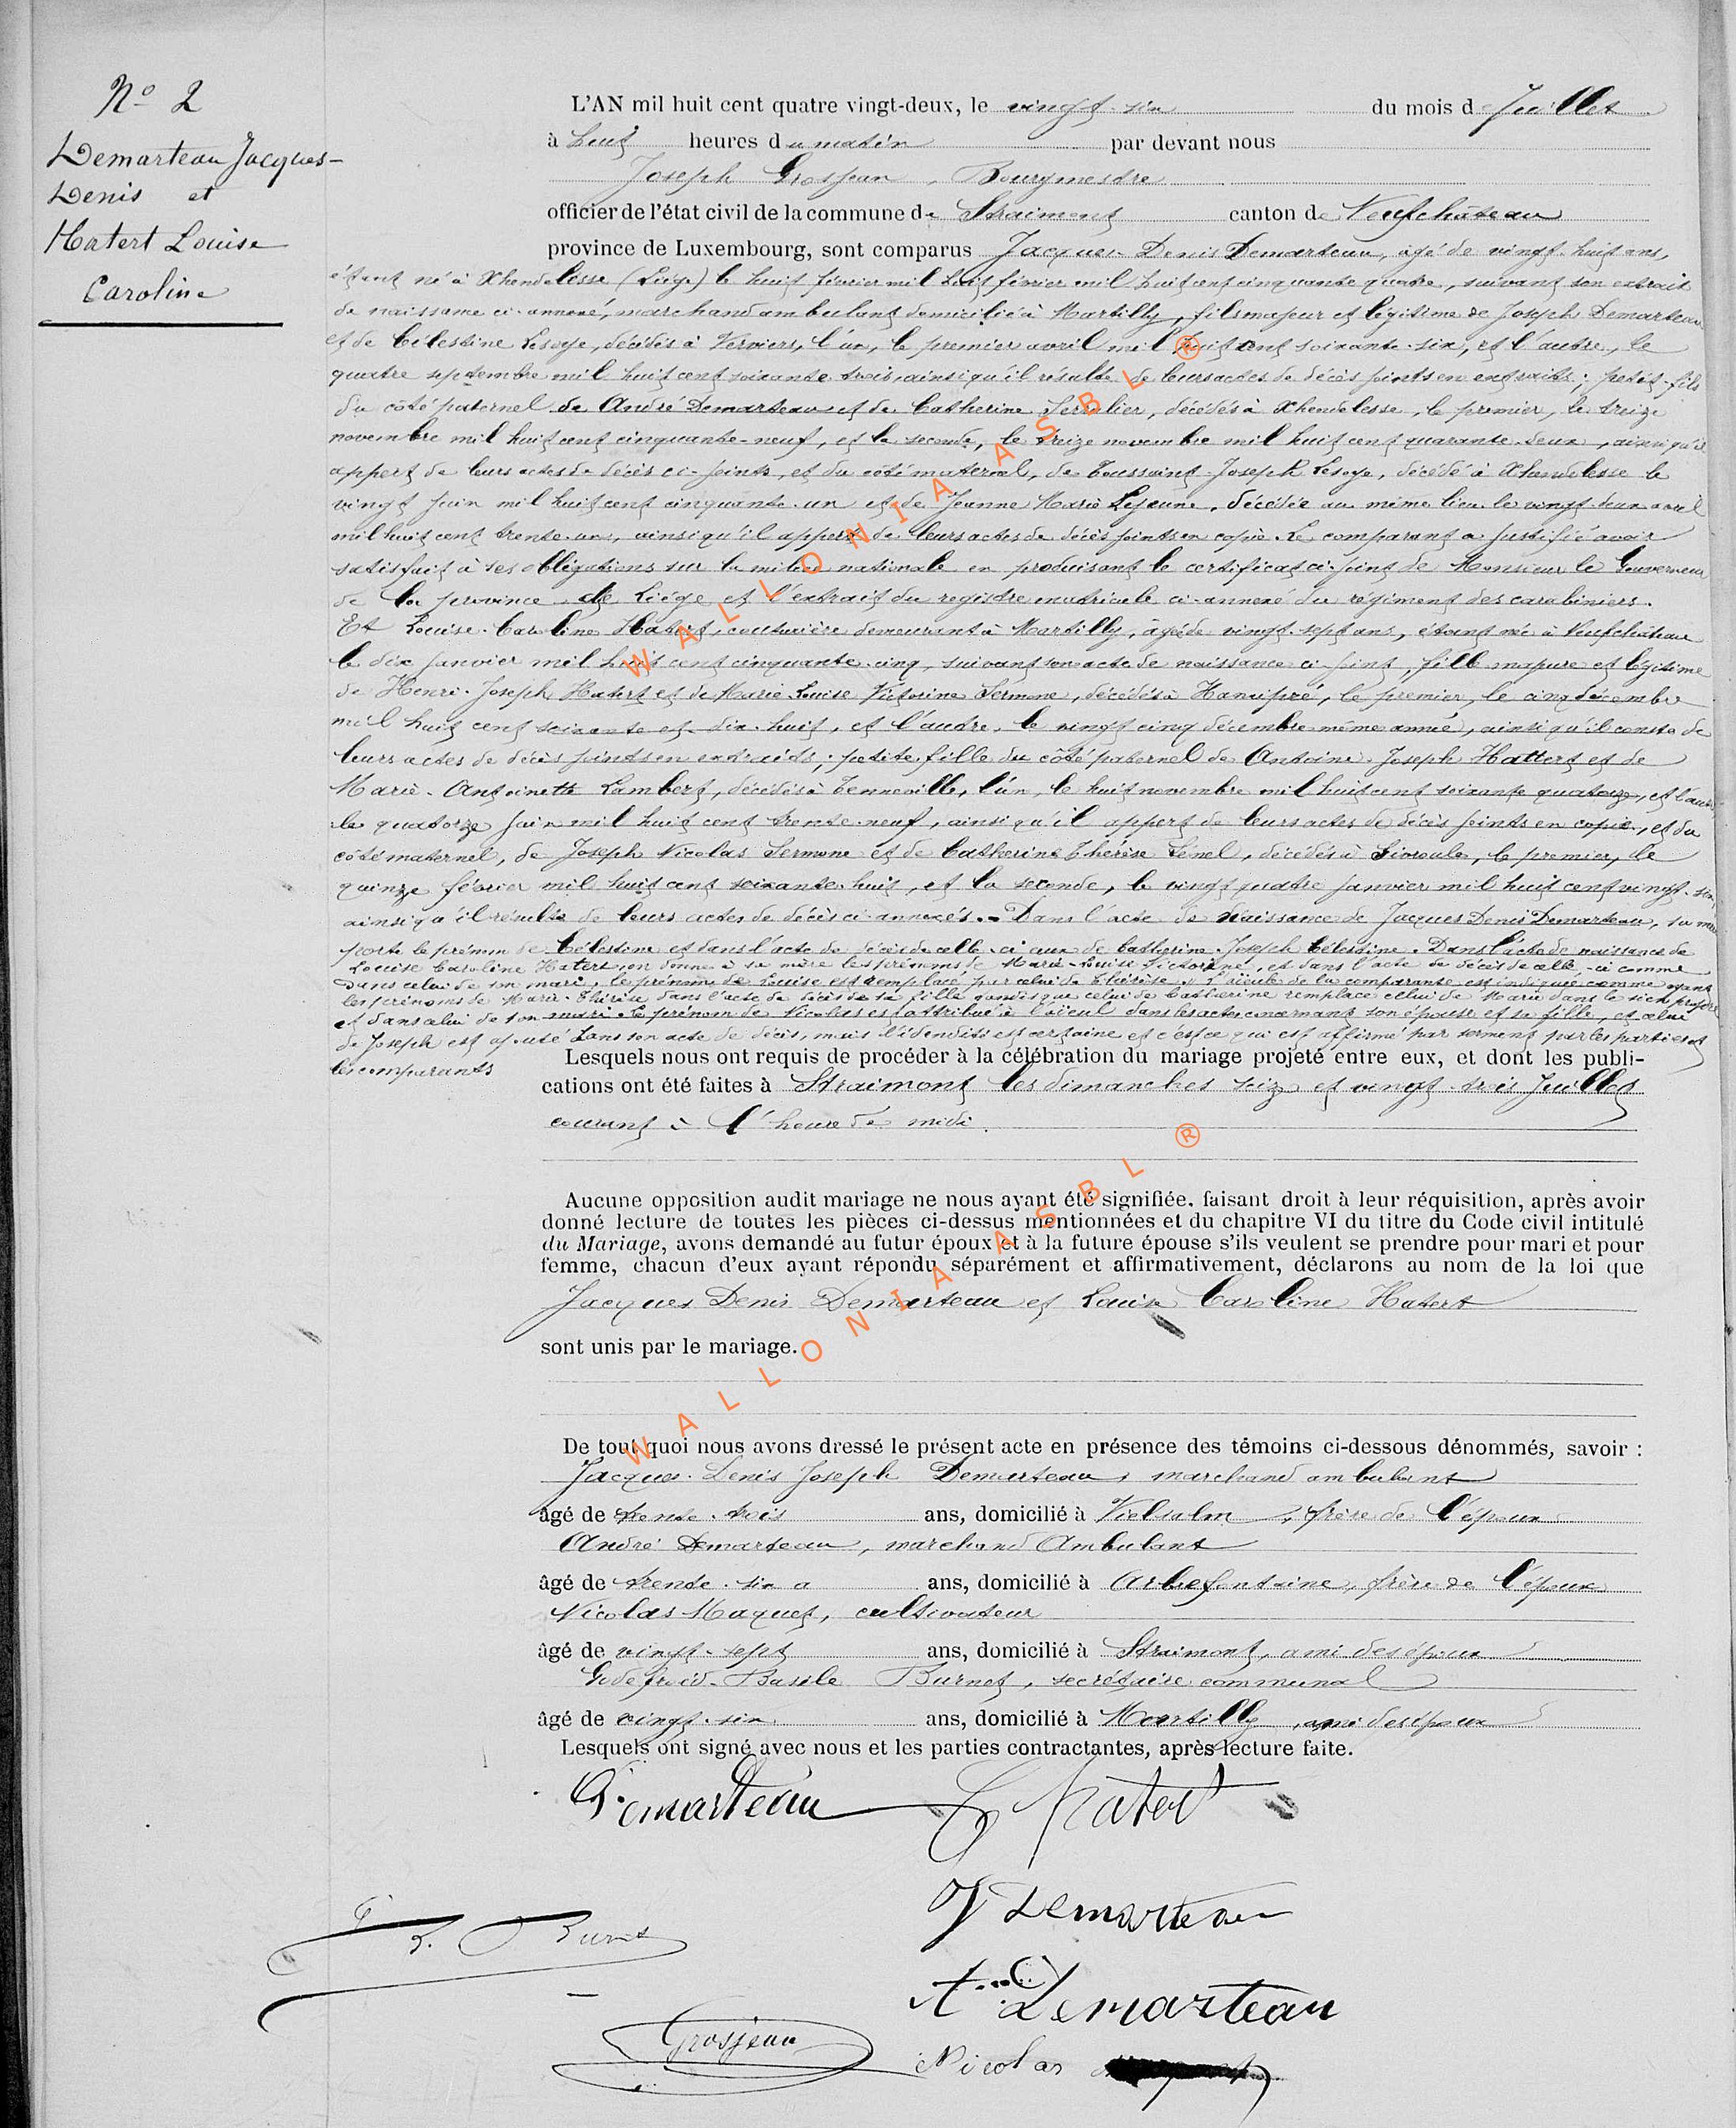 N° 2
Demarteau Jacques-
Denis et
Hatert Louise
Caroline
L'AN mil huit cent quatre vingt-deux, le vingt-six du mois de Juillet
à huit heures du matin par devant nous
Joseph Grosjean, Bourgmestre
officier de l'état civil de la commune de Straimont canton de Neufchâteau
province de Luxembourg, sont comparus Jacques-Denis Demarteau, âgé de vingt-huit ans,
étant né à Xhendelesse (Liége) le huit février mil huit février mil huit cent cinquante quatre, suivant son extrait
de naissance ci-annexé, marchand ambulant domicilié à Martilly, fils majeur et légitime de Joseph Demarteau
et de Célestine Lesoye, décédés à Verviers, l'un, le premier avril mil huit cent soixante-six, et l'autre, le
quatre septembre mil huit cent soixante trois, ainsi qu'il résulte de leurs actes de décès joints en extraits; petit-fils
du côté paternel de André Demarteau et de Catherine, décédés à Xhendelesse, le premier, le treize
novembre mil huit cent cinquante-neuf, et la seconde, le treize novembre mil huit cent quarante-deux, ainsi qu'il
appert de leurs actes de décès ci-joints, et du côté maternel, de Toussaint-Joseph Lesoye, décédé à Xhendelesse le
vingt juin mil huit cent cinquante-un et de Jeanne Marie Lejeune, décédée au même lieu le vingt-deux avril
mil huit cent trente-un, ainsi qu'il appert de leurs actes de décès joints en copie. Le comparant a justifié avoir
satisfait à ses obligations sur la milice nationale en produisant le certificat ci-joint de Monsieur le Gouverneur
de la province de Liége et l'extrait du registre matricule ci-annexé du régiment des carabiniers.
Et Louise-Caroline Hatert, couturière demeurant à Martilly, âgée de vingt-sept ans, étant née à Neufchâteau
le dix janvier mil huit cent cinquante-cinq, suivant son acte de naissance ci-joint, fille majeure et légitime
de Henri-Joseph Hatert et de Marie Louise Victorine Sermone, décédés à Hamipré, le premier, le cinq décembre
mil huit cent soixante et dix-huit, et l'autre, le vingt cinq décembre même année, ainsi qu'il conste de
leurs actes de décès joints en extraits; petite fille du côté paternel de Antoine-Joseph Hattert et de
Marie-Antoinette Lambert, décédés à Tenneville, l'un, le huit novembre mil huit cent soixante quatorze, et l'autre
le quatorze juin mil huit cent trente-neuf, ainsi qu'il appert de leurs actes de décès joints en copie, et du
côté maternel, de Joseph Nicolas Sermone et de Catherine Thérèse, décédés à, le premier, le
quinze février mil huit cent soixante huit, et la seconde, le vingt quatre janvier mil huit cent vingt-six,
ainsi qu'il résulte de leurs actes de décès ci-annexés. - Dans l'acte de naissance de Jacques Denis Demarteau, sa mère
porte le prénom de Célestine et dans l'acte de décès de celle-ci ceux de Catherine-Joseph Célestine. Dans l'acte de naissance de
Louise Caroline Hatert, on donne à sa mère les prénoms de Marie-Louise Victorine, et dans l'acte de décès de celle-ci comme
dans celui de son mari, le prénom de Louise est remplacé par celui de Thérèse. L'aïeule de la comparante est indiquée comme ayant
les prénoms de Marie-Thérèse dans l'acte de décès de sa fille tandis que celui de Catherine remplace celui de Marie dans le sien propre
et dans celui de son mari. Le prénom de Nicolas est attribué à l'aïeul dans les actes concernant son épouse et sa fille, et celui
de Joseph est ajouté dans son acte de décès, mais l'identité est certaine et c'est ce qui est affirmé par serment par les parties et
les comparants
Lesquels nous ont requis de procéder à la célébration du mariage projeté entre eux, et dont les publi-
cations ont été faites à Straimont les dimanches seize et vingt-trois Juillet
courant à l'heure de midi.
Aucune opposition audit mariage ne nous ayant été signifiée, faisant droit à leur réquisition, après avoir
donné lecture de toutes les pièces ci-dessus mentionnées et du chapitre VI du titre du Code civil intitulé
du Mariage, avons demandé au futur époux et à la future épouse s'ils veulent se prendre pour mari et pour
femme, chacun d'eux ayant répondu séparément et affirmativement, déclarons au nom de la loi que
Jacques Denis Demarteau et Louise Caroline Hatert
sont unis par le mariage.
De tout quoi nous avons dressé le présent acte en présence des témoins ci-dessous dénommés, savoir :
Jacques-Denis Joseph Demarteau, marchand ambulant
âgé de trente-trois ans, domicilié à Vielsalm, frère de l'époux
André Demarteau, marchand Ambulant
âgé de trente-six a ans, domicilié à Arbrefontaine, frère de l'époux
Nicolas Maquet, cultivateur
âgé de vingt-sept ans, domicilié à Straimont, ami des époux
Godefroid-Basile Burnet, secrétaire communal
âgé de vingt-six ans, domicilié à Martilly, ami des époux
Lesquels ont signé avec nous et les parties contractantes, après lecture faite.
Demarteau
Hatert
J Demarteau
Burnet
A. Demarteau
Grosjean
Nicolas
WALLONIA ASBL ®
WALLONIA ASBL ®